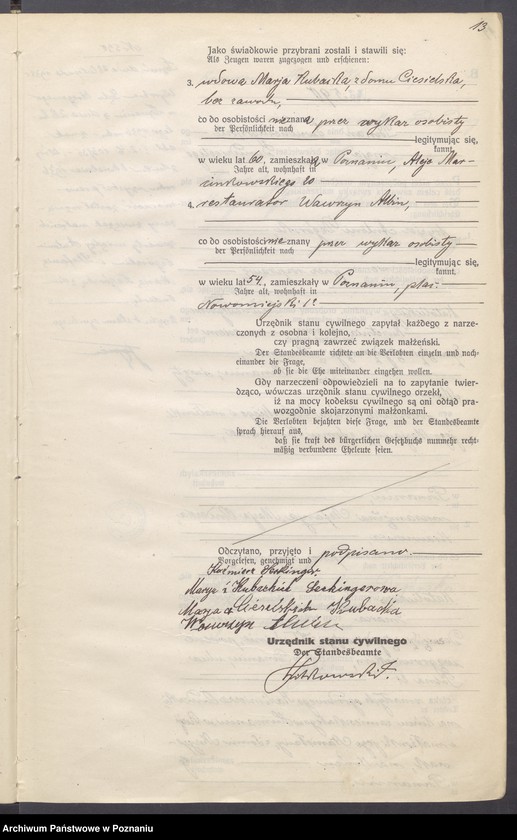 13
Jako świadkowie przybrani zostali i stawili się:
Als Zeugen waren zugezogen und erschienen:
3. wdowa Marja Kubacka, z domu Ciesielska,
bez zawodu,
co do osobistości nieznana przez wykaz osobisty
der Persönlichkeit nach
legitymując się,
kannt.
w wieku lat 60, zamieszkała w Poznaniu, Aleje Mar-
Jahre alt, wohnhaft in
cinkowskiego 20
4. restaurator Wawrzyn
co do osobistości nieznany przez wykaz osobisty
der Persönlichkeit nach
legitymując się,
kannt.
w wieku lat 54, zamieszkały w Poznaniu, plac
Jahre alt, wohnhaft in
Nowomiejski
Urzędnik stanu cywilnego zapytał każdego z narze-
czonych z osobna i kolejno,
czy pragną zawrzeć związek małżeński.
Der Standesbeamte richtete an die Verlobten einzeln und nach-
einander die Frage,
ob sie die Ehe miteinander eingehen wollen.
Gdy narzeczeni odpowiedzieli na to zapytanie twier-
dząco, wówczas urzędnik stanu cywilnego orzekł,
iż na mocy kodeksu cywilnego są oni odtąd pra-
wozgodnie skojarzonymi małżonkami.
Die Verlobten bejahten diese Frage, und der Standesbeamte
sprach hierauf aus,
daß sie kraft des bürgerlichen Gesetzbuchs nunmehr recht-
mäßig verbundene Eheleute seien.
Odczytano, przyjęto i podpisano
Vorgelesen, genehmigt und
Kaźmierz
Marya z Kubackich
Marja z Cieselskich Kubacka
Wawrzyn
Urzędnik stanu cywilnego
Der Standesbeamte
Archiwum Państwowe w Poznaniu